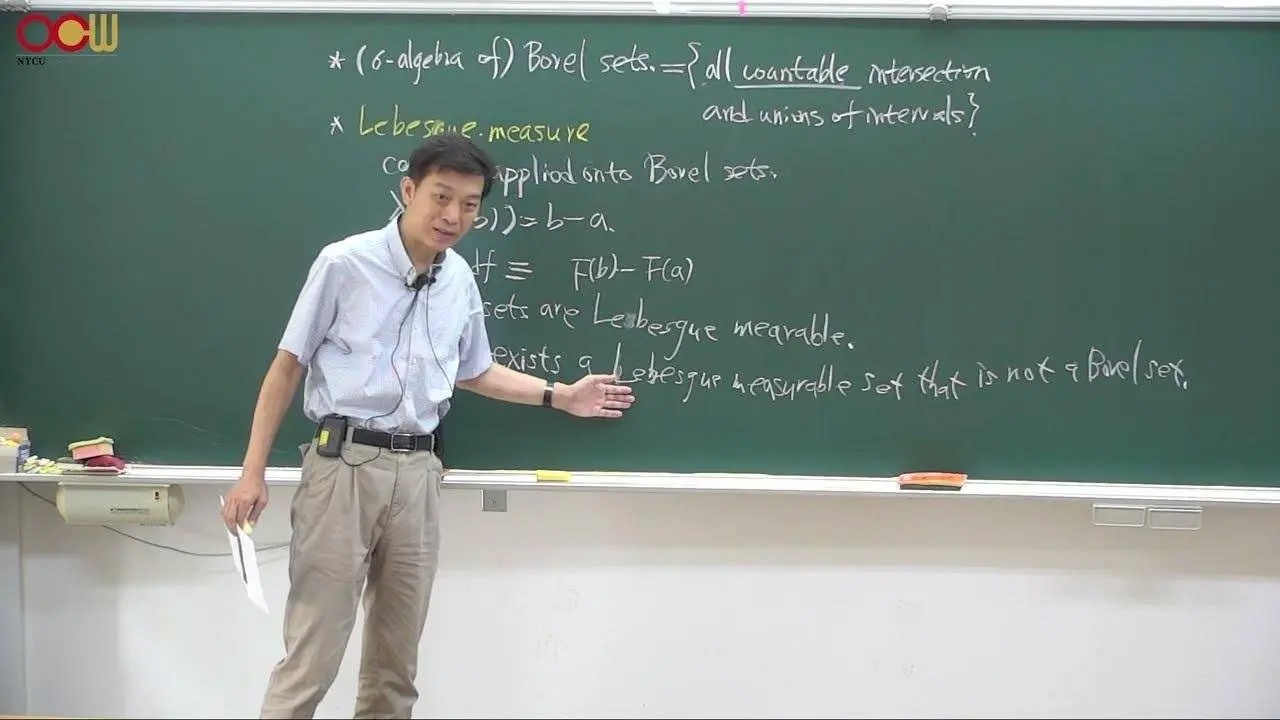 OCW
NYCU
* (σ-algebra of) Borel sets. = {all countable intersection
and unions of intervals}
* Lebesgue measure
applied onto Borel sets.
b)) = b-a.
df ≡ F(b) - F(a)
sets are Lebesgue mearable.
exists a Lebesgue measurable set that is not a Borel set.